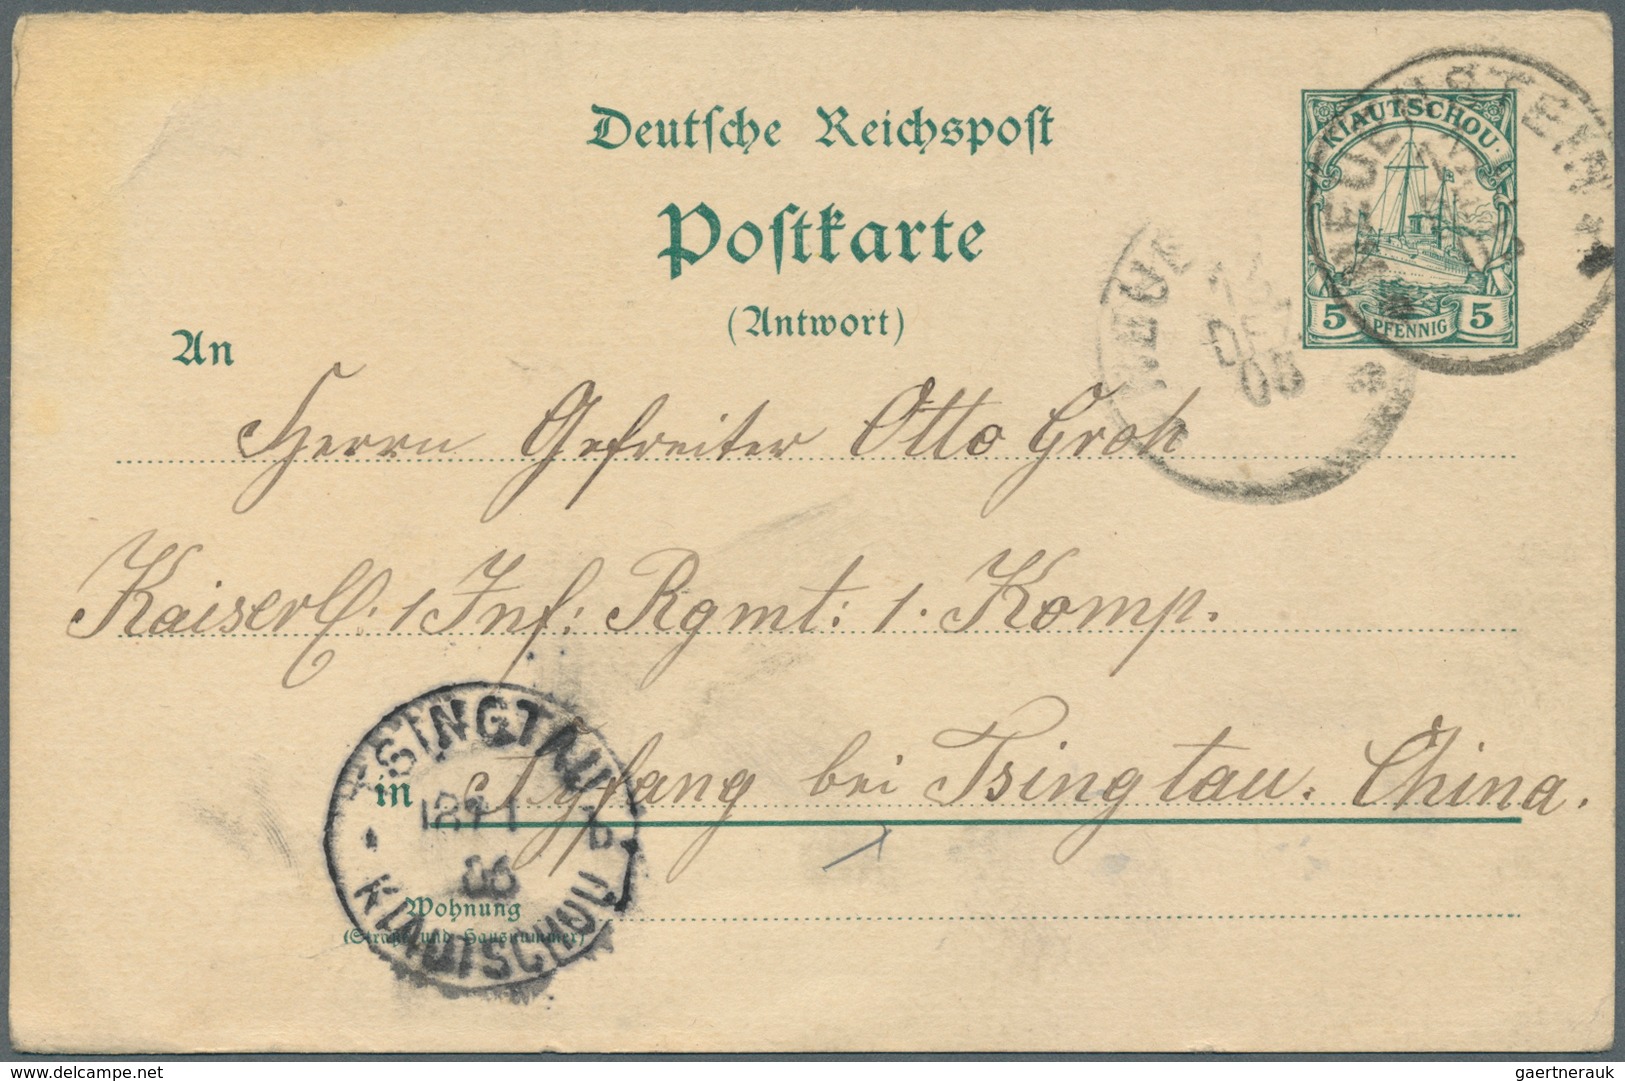 Deutsche Reichspost
Postkarte
(Antwort)
KIAUTSCHOU
5 PFENNIG 5
An
05
Herrn Gefreiter Otto Groh
Kaiserl. 1 Inf. Rgmt: 1. Komp.
TSINGTAU
in Syfang bei Tsingtau. China.
06
KIAUTSCHOU
Wohnung
(Straße und Hausnummer)
www.delcampe.net
gaertnerauk